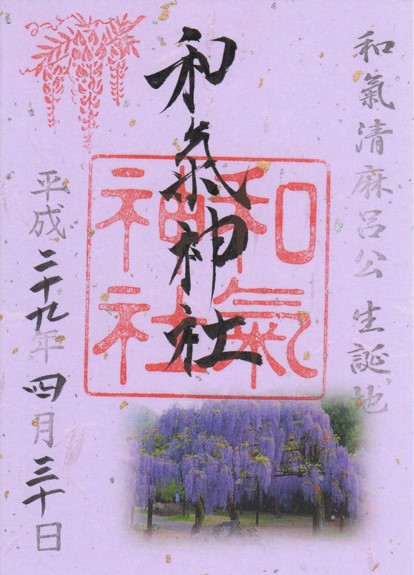 和氣清麻呂公生誕地
和氣神社
和氣
神社
平成二十九年四月三十日